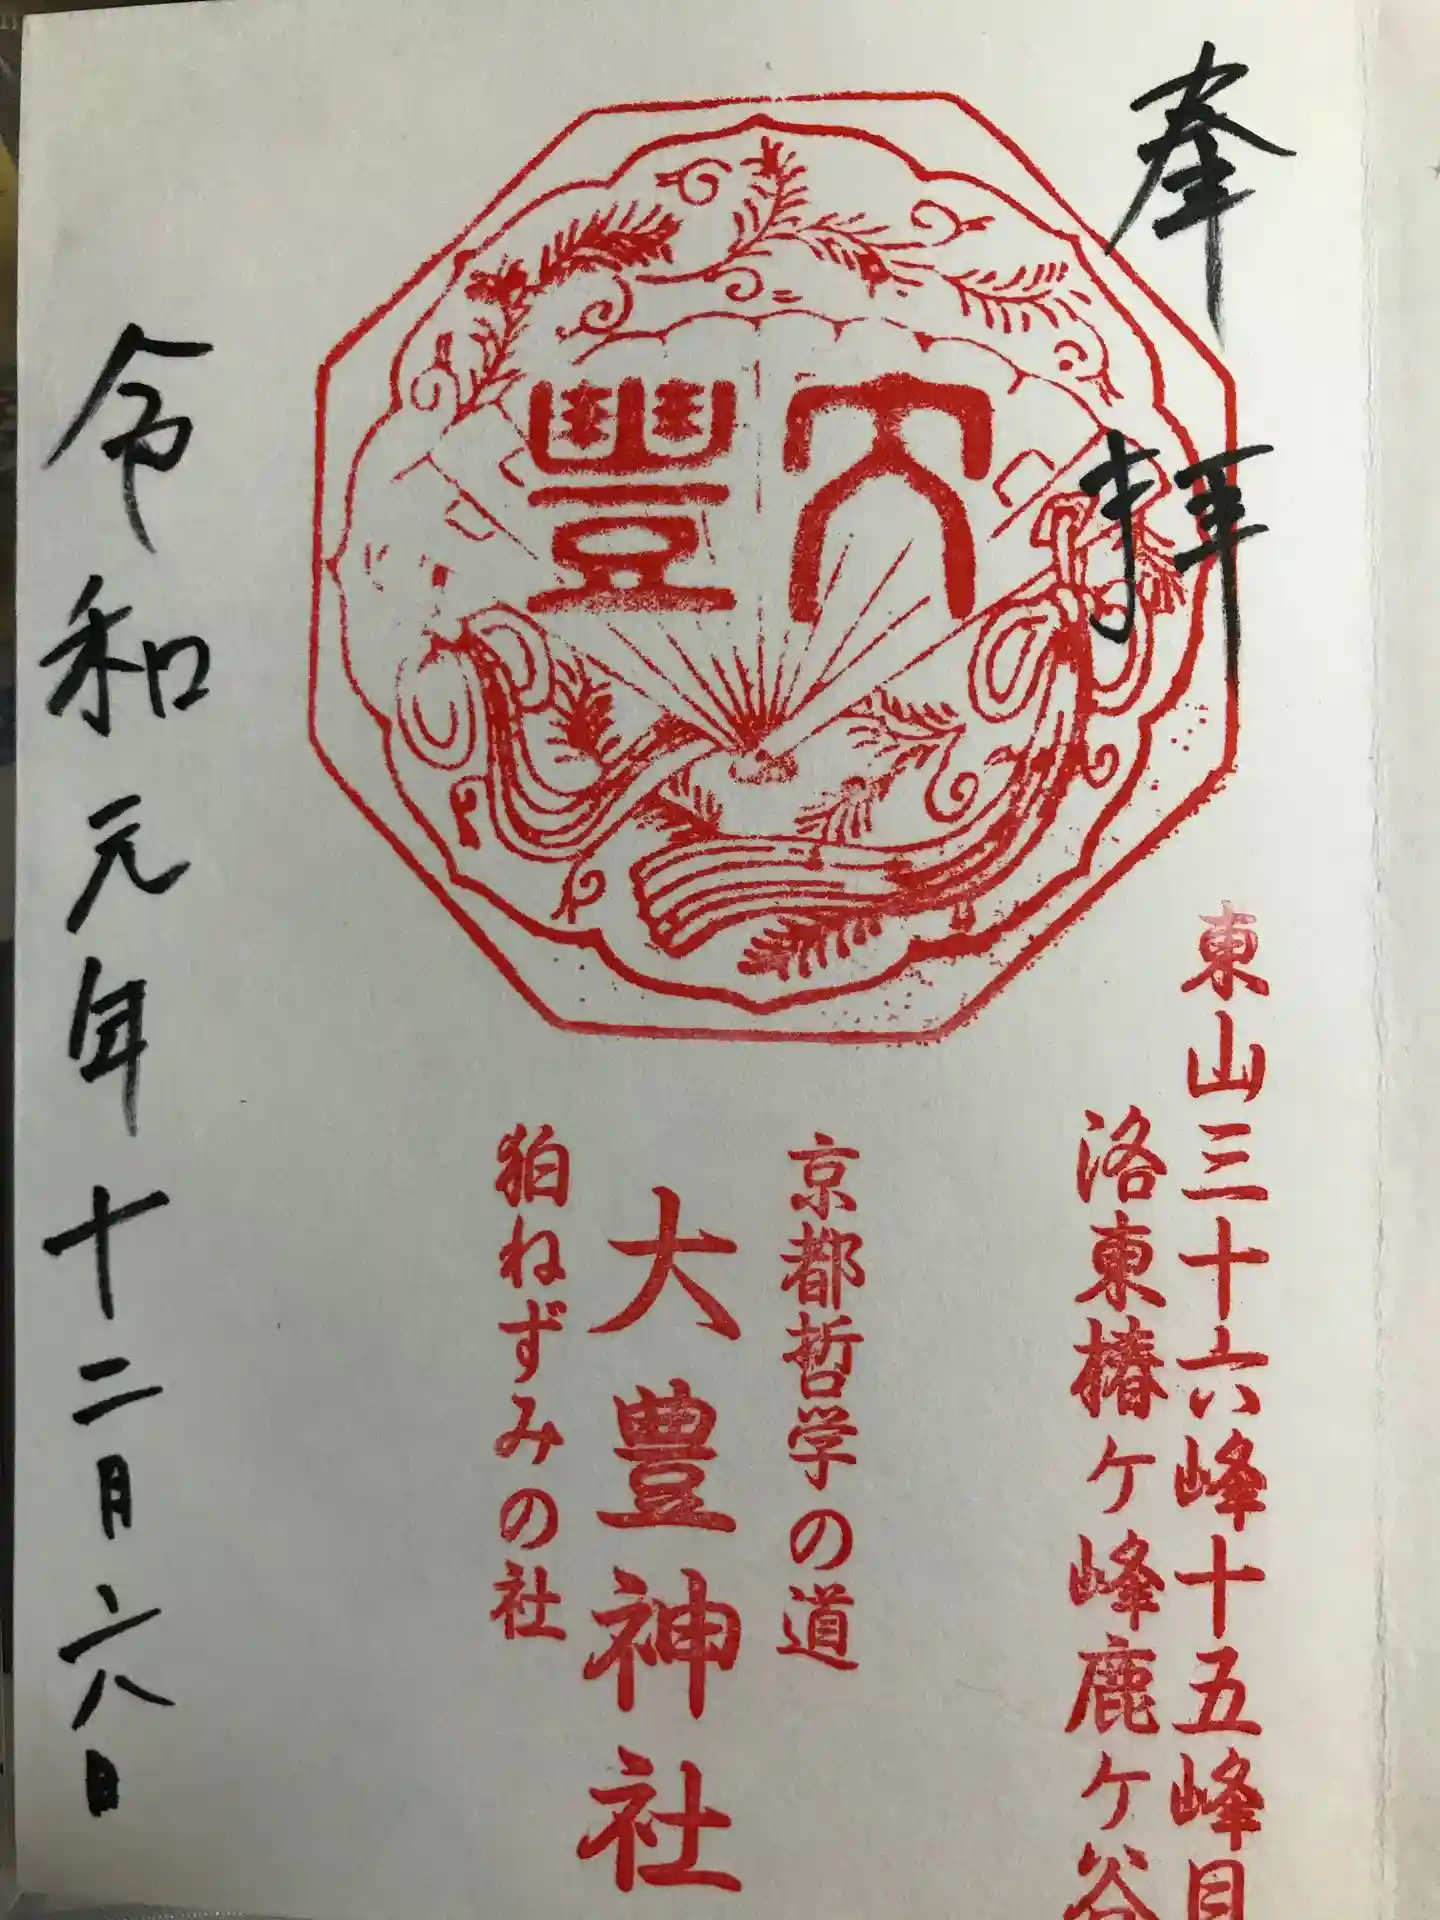 奉拝
東山三十六峰十五峰目
洛東椿ケ峰鹿ケ谷
大豊
京都哲学の道
大豊神社
狛ねずみの社
令和元年十二月六日